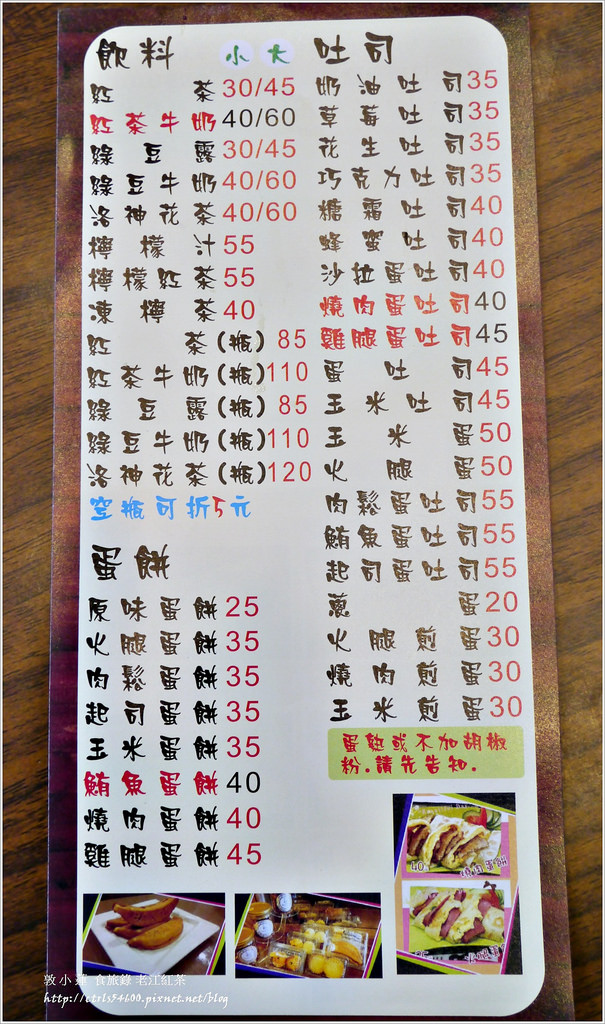 飲料 小 大
紅茶 30/45
紅茶牛奶 40/60
綠豆露 30/45
綠豆牛奶 40/60
洛神花茶 40/60
檸檬汁 55
檸檬紅茶 55
凍檸茶 40
紅茶(瓶) 85
紅茶牛奶(瓶) 110
綠豆露(瓶) 85
綠豆牛奶(瓶) 110
洛神花茶(瓶) 120
空瓶可折5元
蛋餅
原味蛋餅 25
火腿蛋餅 35
肉鬆蛋餅 35
起司蛋餅 35
玉米蛋餅 35
鮪魚蛋餅 40
燒肉蛋餅 40
雞腿蛋餅 45
吐司
奶油吐司 35
草莓吐司 35
花生吐司 35
巧克力吐司 35
糖霜吐司 40
蜂蜜吐司 40
沙拉蛋吐司 40
燒肉蛋吐司 40
雞腿蛋吐司 45
蛋吐司 45
玉米吐司 45
玉米蛋 50
火腿蛋 50
肉鬆蛋吐司 55
鮪魚蛋吐司 55
起司蛋吐司 55
蔥蛋 20
火腿煎蛋 30
燒肉煎蛋 30
玉米煎蛋 30
蛋熟或不加胡椒
粉.請先告知.
燒肉蛋餅
敦小蓮 食旅錄 老江紅茶
http://etrls54600.pixnet.net/blog